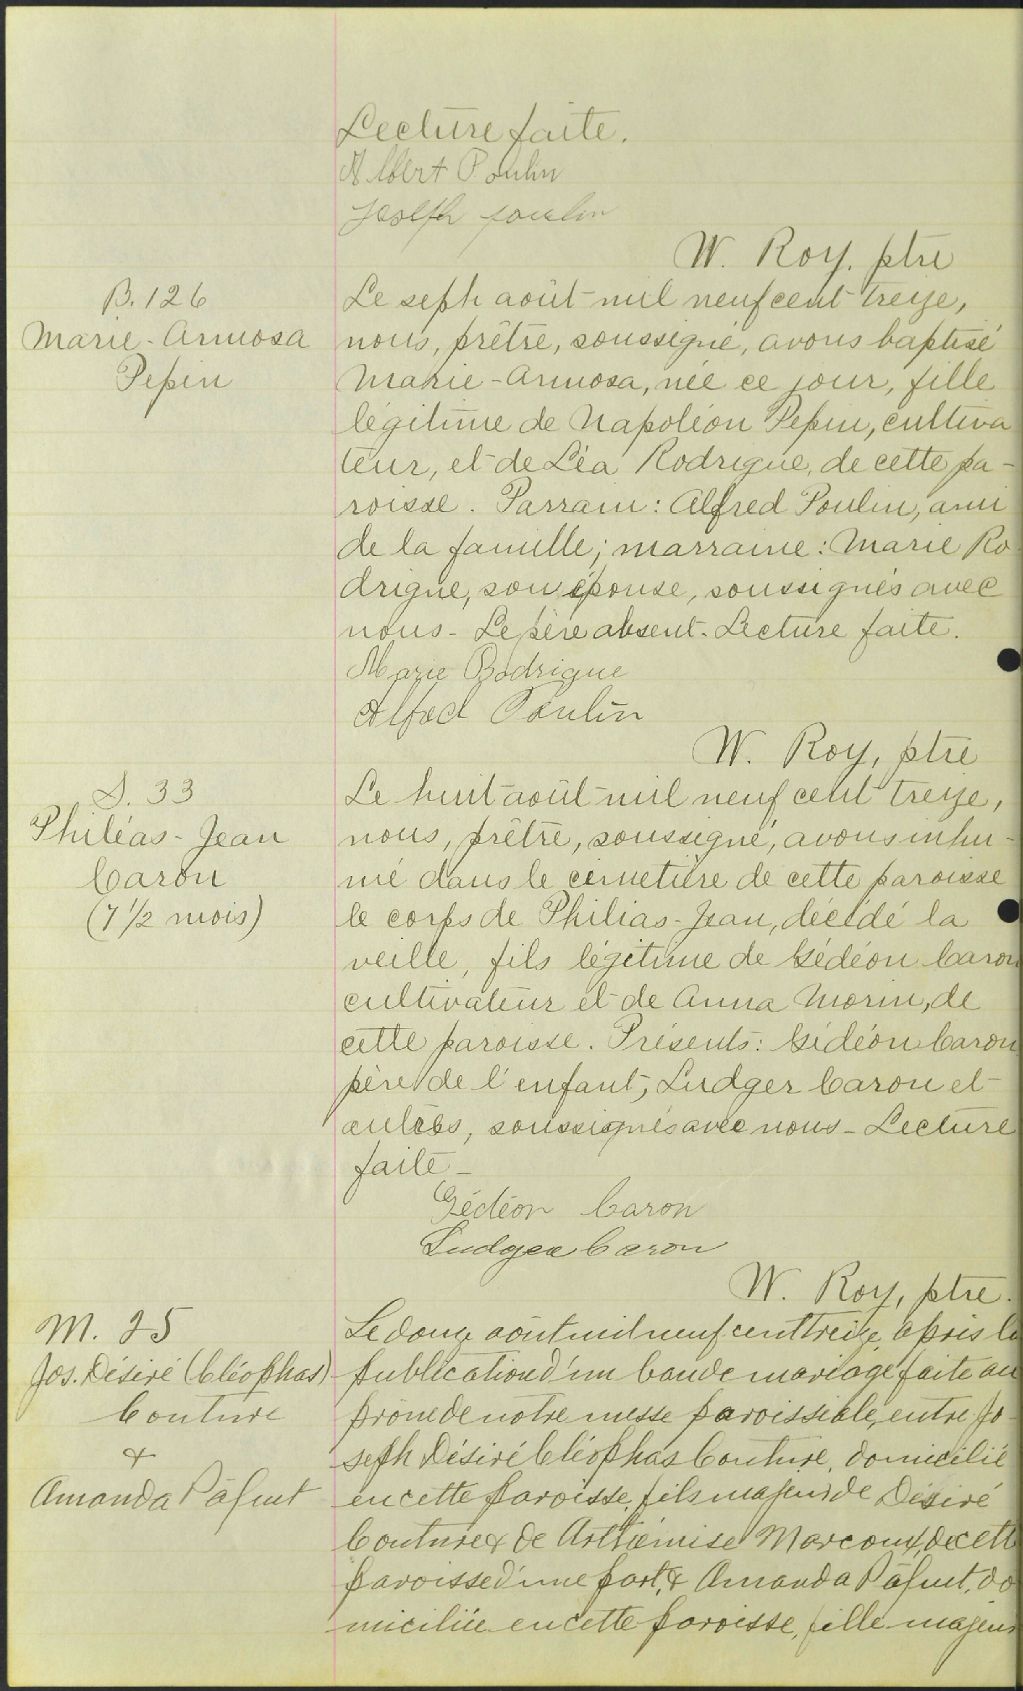 Lecture faite.
Albert Poulin
Joseph Poulin
W. Roy, ptre
B. 126
Marie-Armosa
Pepin
Le sept août mil neuf cent treize,
nous, prêtre, soussigné, avons baptisé
Marie-Armosa, née ce jour, fille
légitime de Napoléon Pepin, cultiva
teur, et de Léa Rodrigue, de cette pa-
roisse. Parrain: Alfred Poulin, ami
de la famille; marraine: Marie Ro
drigue, son épouse, soussignés avec
nous- Le père absent. Lecture faite.
Marie Rodrigue
Alfred Poulin
W. Roy, ptre
S. 33
Philéas-Jean
Caron
(7 1/2 mois)
Le huit août mil neuf cent treize,
nous, prêtre, soussigné, avons inhu-
mé dans le cimetière de cette paroisse
le corps de Philias-Jean, décédé la
veille, fils légitime de Gédéon Caron
cultivateur et de Anna Morin, de
cette paroisse. Présents: Gédéon Caron
père de l'enfant, Ludger Caron et
autres, soussignés avec nous- Lecture
faite-
Gédéon Caron
Ludger Caron
W. Roy, ptre.
M. 25
Jos. Désiré (Cléophas)
Couture
&
Amanda Pâquet
Le douze août mil neuf cent treize, après la
publication d'un ban de mariage faite au
prone de notre messe paroissiale, entre Jo-
seph Désiré Cléophas Couture, domicilié
en cette paroisse, fils majeur de Désiré
Couture & de Arthémise Marcoux, de cette
paroisse d'une part, & Amanda Pâquet, do
miciliée en cette paroisse, fille majeure